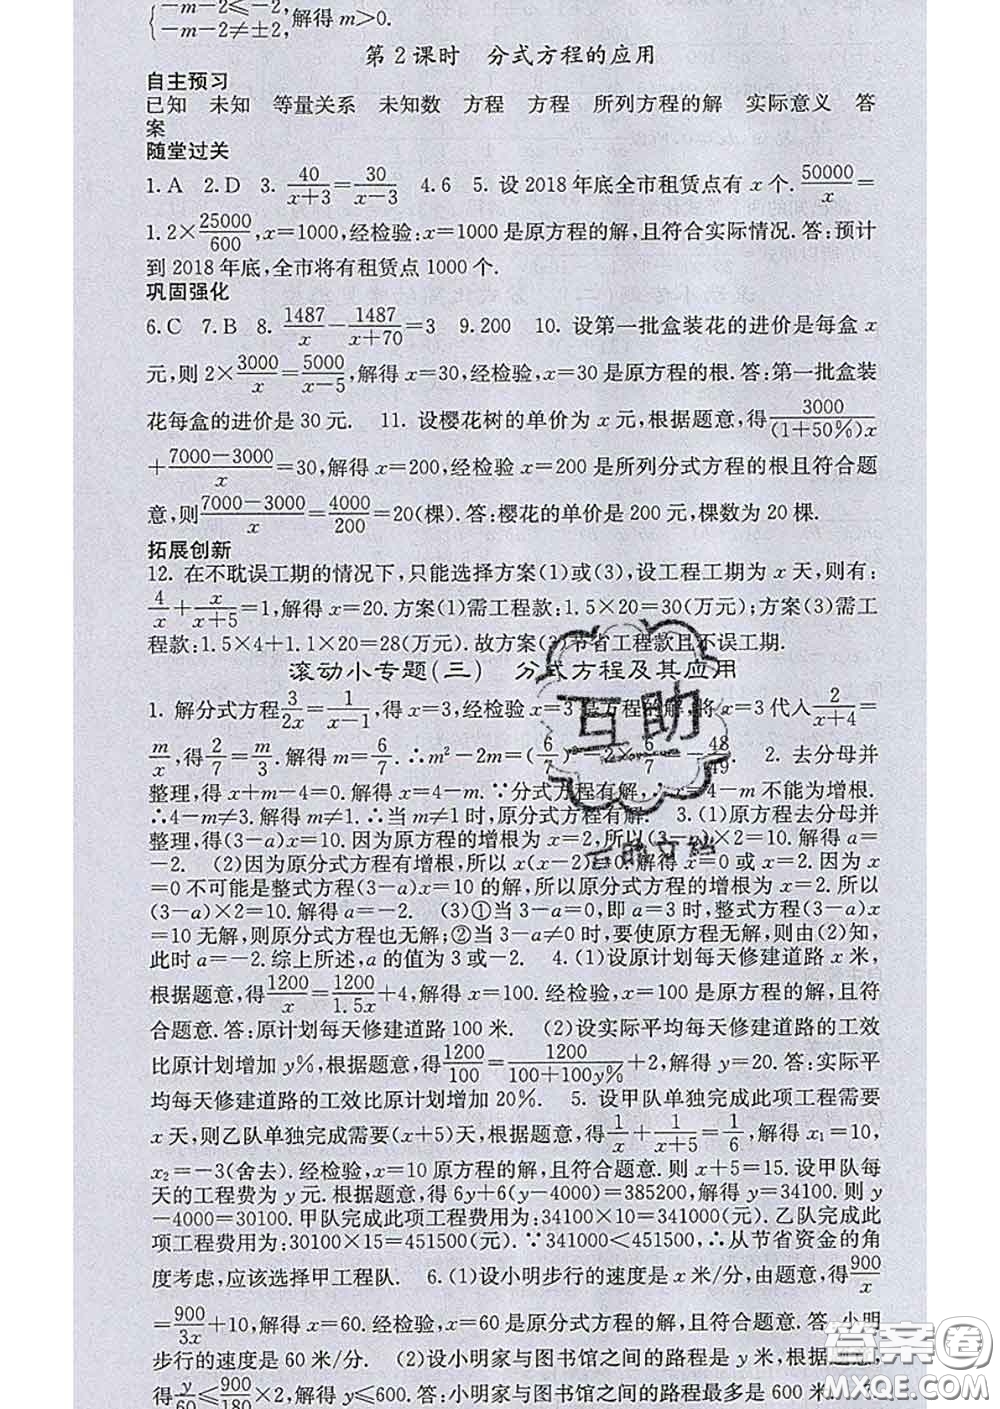 {−m−2≤−2, −m−2≠±2,解得 m>0.
第2课时　分式方程的应用
自主预习
已知　未知　等量关系　未知数　方程　方程　所列方程的解　实际意义　答
案
随堂过关
1. A　2. D　3. 40/(x+3)=30/(x−3)　4.6　5. 设 2018 年底全市租赁点有 x 个. 50000/x=
1.2×25000/600,x=1000,经检验:x=1000 是原方程的解,且符合实际情况.答:预计
到 2018 年底,全市将有租赁点 1000 个.
巩固强化
6.C　7.B　8. 1487/x−1487/(x+70)=3　9.200　10. 设第一批盒装花的进价是每盒 x
元,则 2×3000/x=5000/(x−5),解得 x=30,经检验,x=30 是原方程的根.答:第一批盒装
花每盒的进价是 30 元.　11. 设樱花树的单价为 x 元,根据题意,得3000/((1+50%)x)
+(7000−3000)/x=30,解得 x=200,经检验 x=200 是所列分式方程的根且符合题
意,则(7000−3000)/x=4000/200=20(棵).答:樱花的单价是 200 元,棵数为 20 棵.
拓展创新
12. 在不耽误工期的情况下,只能选择方案(1)或(3),设工程工期为 x 天,则有:
4/x+x/(x+5)=1,解得 x=20.方案(1)需工程款:1.5×20=30(万元);方案(3)需工
程款:1.5×4+1.1×20=28(万元).故方案(3)节省工程款且不误工期.
滚动小专题(三)　分式方程及其应用
1. 解分式方程3/2x=1/(x−1),得 x=3,经检验 x=3 是方程的解,将 x=3 代入2/(x+4)=
m/x,得2/7=m/3.解得 m=6/7.∴m²−2m=(6/7)²−2×6/7=−48/49.　2. 去分母并
整理,得 x+m−4=0.解得 x=4−m.∵分式方程有解,∴x=4−m 不能为增根.
∴4−m≠3.解得 m≠1.∴当 m≠1 时,原分式方程有解.　3.(1)原方程去分母并
整理,得(3−a)x=10.因为原方程的增根为 x=2,所以(3−a)×2=10.解得 a=
−2.　(2)因为原分式方程有增根,所以 x(x−2)=0.解得 x=0 或 x=2.因为 x
=0 不可能是整式方程(3−a)x=10 的解,所以原分式方程的增根为 x=2.所以
(3−a)×2=10.解得 a=−2.　(3)①当 3−a=0,即 a=3 时,整式方程(3−a)x
=10 无解,则原分式方程也无解;②当 3−a≠0 时,要使原方程无解,则由(2)知,
此时 a=−2.综上所述,a 的值为 3 或−2.　4.(1)设原计划每天修建道路 x 米,
根据题意,得1200/x=1200/1.5x+4,解得 x=100.经检验,x=100 是原方程的解,且符
合题意.答:原计划每天修建道路 100 米.　(2)设实际平均每天修建道路的工效
比原计划增加 y%,根据题意,得1200/100=1200/(100+100y%)+2,解得 y=20.答:实际平
均每天修建道路的工效比原计划增加 20%.　5. 设甲队单独完成此项工程需要
x 天,则乙队单独完成需要(x+5)天,根据题意,得1/x+1/(x+5)=1/6,解得 x₁=10,
x₂=−3(舍去).经检验,x=10 原方程的解,且符合题意.则 x+5=15.设甲队每
天的工程费为 y 元.根据题意,得 6y+6(y−4000)=385200,解得 y=34100.则 y
−4000=30100.甲队完成此项工程费用为:34100×10=341000(元).乙队完成此
项工程费用为:30100×15=451500(元).∵341000<451500,∴从节省资金的角
度考虑,应该选择甲工程队.　6.(1)设小明步行的速度是 x 米/分,由题意,得900/x
=900/3x+10,解得 x=60.经检验,x=60 是原分式方程的解,且符合题意.答:小明
步行的速度是 60 米/分.　(2)设小明家与图书馆之间的路程是 y 米,根据题意,
得y/60≤900/180×2,解得 y≤600.答:小明家与图书馆之间的路程最多是 600 米.
互助
百明文档
答案圈
MXQE.COM